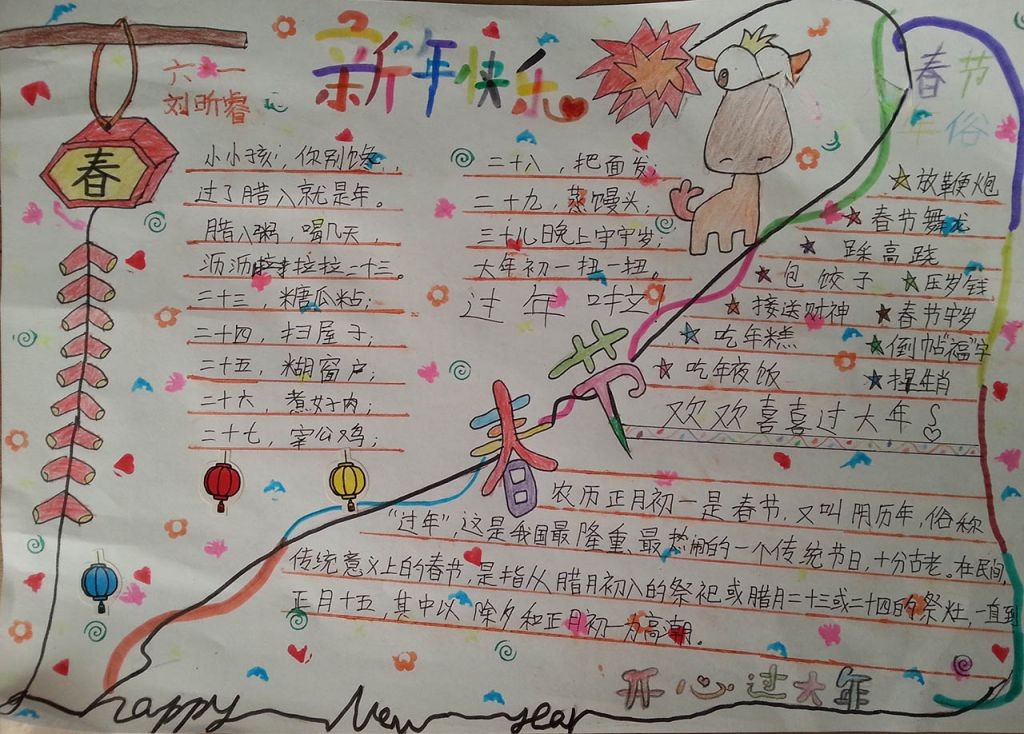 新年快乐
六一
刘昕睿
春
小小孩，你别馋，
过了腊八就是年。
腊八粥，喝几天，
沥沥拉拉二十三。
二十三，糖瓜粘；
二十四，扫屋子；
二十五，糊窗户；
二十六，煮好肉；
二十七，宰公鸡；
二十八，把面发；
二十九，蒸馒头；
三十儿晚上守守岁；
大年初一扭一扭。
过年啦！
春节
年俗
放鞭炮
春节舞龙
踩高跷
包饺子 压岁钱
接送财神 春节守岁
吃年糕 倒帖"福"字
吃年夜饭 捏生肖
欢欢喜喜过大年
春节
农历正月初一是春节，又叫阴历年，俗称
"过年"，这是我国最隆重、最热闹的一个传统节日，十分古老。在民间，
传统意义上的春节，是指从腊月初八的祭祀或腊月二十三或二十四的祭灶，一直到
正月十五，其中以除夕和正月初一为高潮。
开心过大年
happy New year